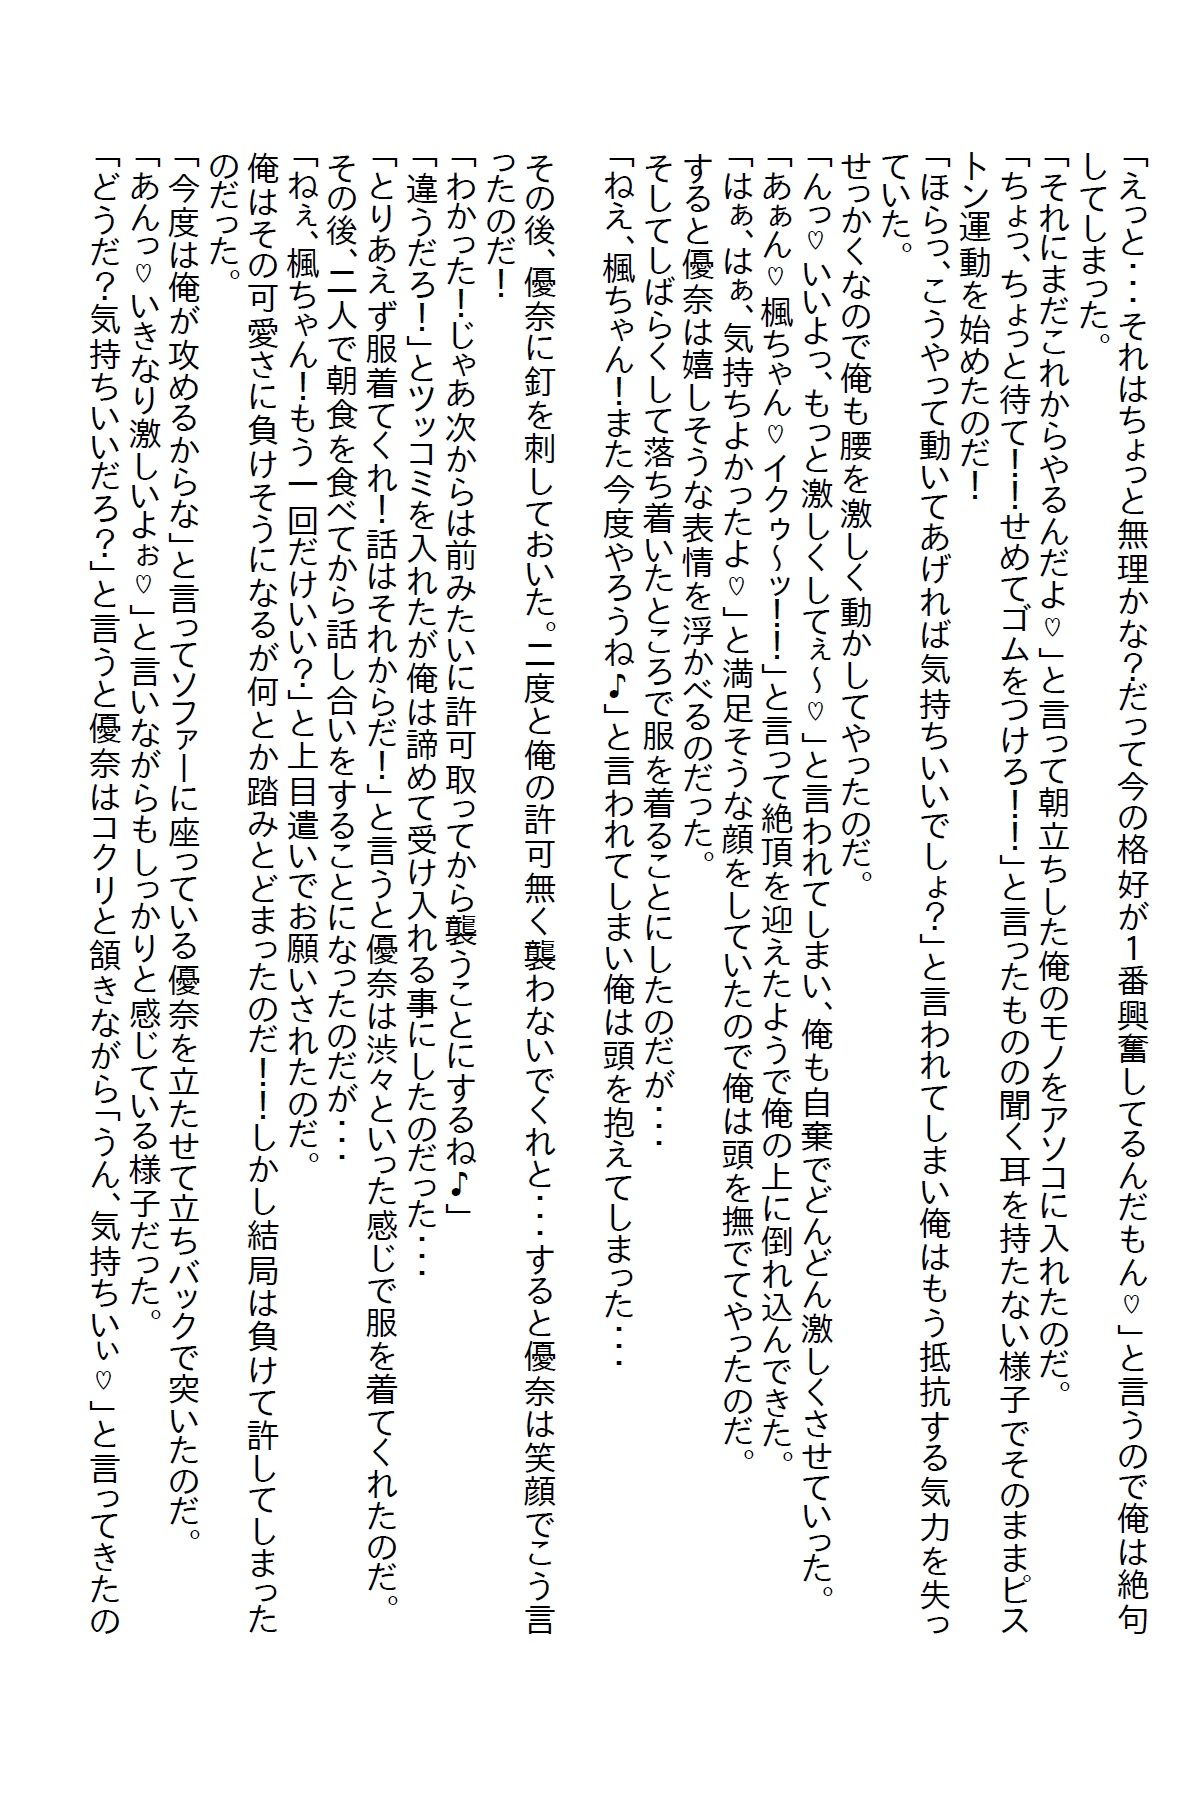 「えっと・・・それはちょっと無理かな？だって今の格好が１番興奮してるんだもん♡」と言うので俺は絶句
してしまった。
「それにまだこれからやるんだよ♡」と言って朝立ちした俺のモノをアソコに入れたのだ。
「ちょっ、ちょっと待て！！せめてゴムをつけろ！！」と言ったものの聞く耳を持たない様子でそのままピス
トン運動を始めたのだ！
「ほらっ、こうやって動いてあげれば気持ちいいでしょ？」と言われてしまい俺はもう抵抗する気力を失っ
ていた。
せっかくなので俺も腰を激しく動かしてやったのだ。
「んっ♡いいよっ、もっと激しくしてぇ～♡」と言われてしまい、俺も自棄でどんどん激しくさせていった。
「あぁん♡楓ちゃん♡イクゥ～ッ！！」と言って絶頂を迎えたようで俺の上に倒れ込んできた。
「はぁ、はぁ、気持ちよかったよ♡」と満足そうな顔をしていたので俺は頭を撫でてやったのだ。
すると優奈は嬉しそうな表情を浮かべるのだった。
そしてしばらくして落ち着いたところで服を着ることにしたのだが・・・
「ねえ、楓ちゃん！また今度やろうね♪」と言われてしまい俺は頭を抱えてしまった・・・
その後、優奈に釘を刺しておいた。二度と俺の許可無く襲わないでくれと・・・すると優奈は笑顔でこう言
ったのだ！
「わかった！じゃあ次からは前みたいに許可取ってから襲うことにするね♪」
「違うだろ！」とツッコミを入れたが俺は諦めて受け入れる事にしたのだった・・・
「とりあえず服着てくれ！話はそれからだ！」と言うと優奈は渋々といった感じで服を着てくれたのだ。
その後、二人で朝食を食べてから話し合いをすることになったのだが・・・
「ねぇ、楓ちゃん！もう一回だけいい？」と上目遣いでお願いされたのだ。
俺はその可愛さに負けそうになるが何とか踏みとどまったのだ！！しかし結局は負けて許してしまった
のだった。
「今度は俺が攻めるからな」と言ってソファーに座っている優奈を立たせて立ちバックで突いたのだ。
「あんっ♡いきなり激しいよぉ♡」と言いながらもしっかりと感じている様子だった。
「どうだ？気持ちいいだろ？」と言うと優奈はコクリと頷きながら「うん、気持ちいぃ♡」と言ってきたの